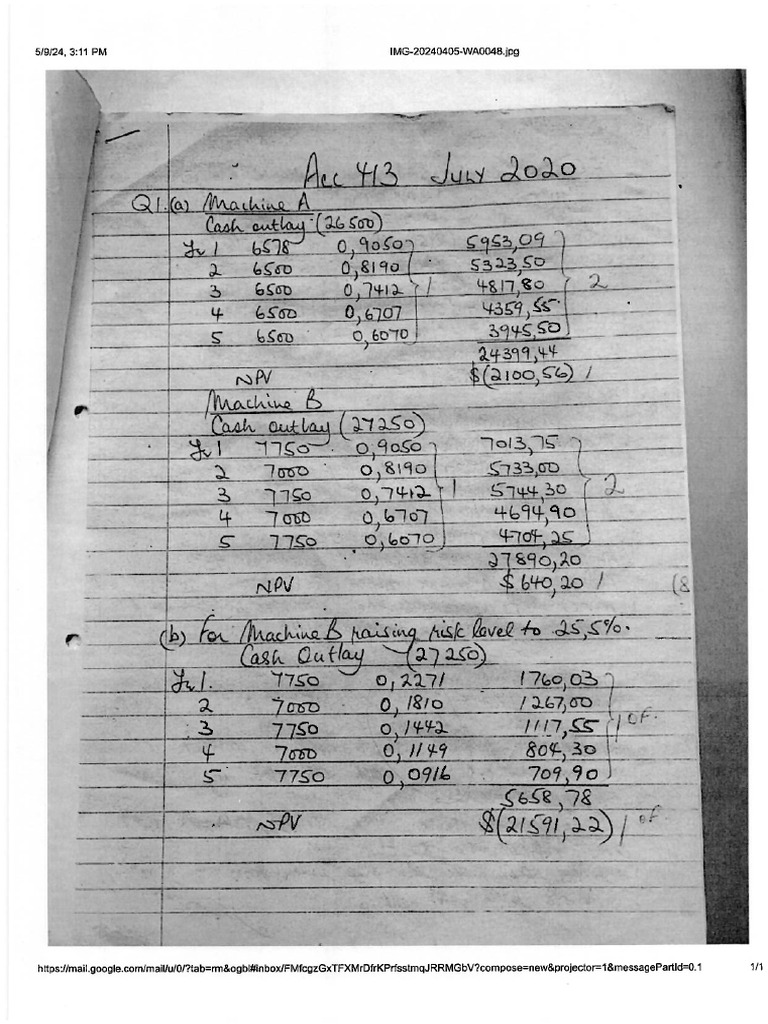 5/9/24, 3:11 PM IMG-20240405-WA0048.jpg
Acc 413 July 2020
Q1.(a) Machine A
Cash outlay (26500)
Yr 1 6578 0,9050 5953,09
2 6500 0,8190 5323,50
3 6500 0,7412 1 4817,80 2
4 6500 0,6707 4359,55
5 6500 0,6070 3945,50
24399,44
NPV $(2100,56) 1
Machine B
Cash outlay (27250)
Yr 1 7750 0,9050 7013,75
2 7000 0,8190 5733,00
3 7750 0,7412 1 5744,30 2
4 7000 0,6707 4694,90
5 7750 0,6070 4704,25
27890,20
NPV $ 640,20 1 (8
(b) For Machine B raising risk level to 25,5%.
Cash Outlay (27250)
Yr 1. 7750 0,2271 1760,03
2 7000 0,1810 1267,00
3 7750 0,1442 1117,55 1 of.
4 7000 0,1149 804,30
5 7750 0,0916 709,90
5658,78
NPV $(21591,22) 1 of
https://mail.google.com/mail/u/0/?tab=rm&ogbl#inbox/FMfcgzGxTFXMrDfrKPrfsstmqJRRMGbV?compose=new&projector=1&messagePartId=0.1 1/1